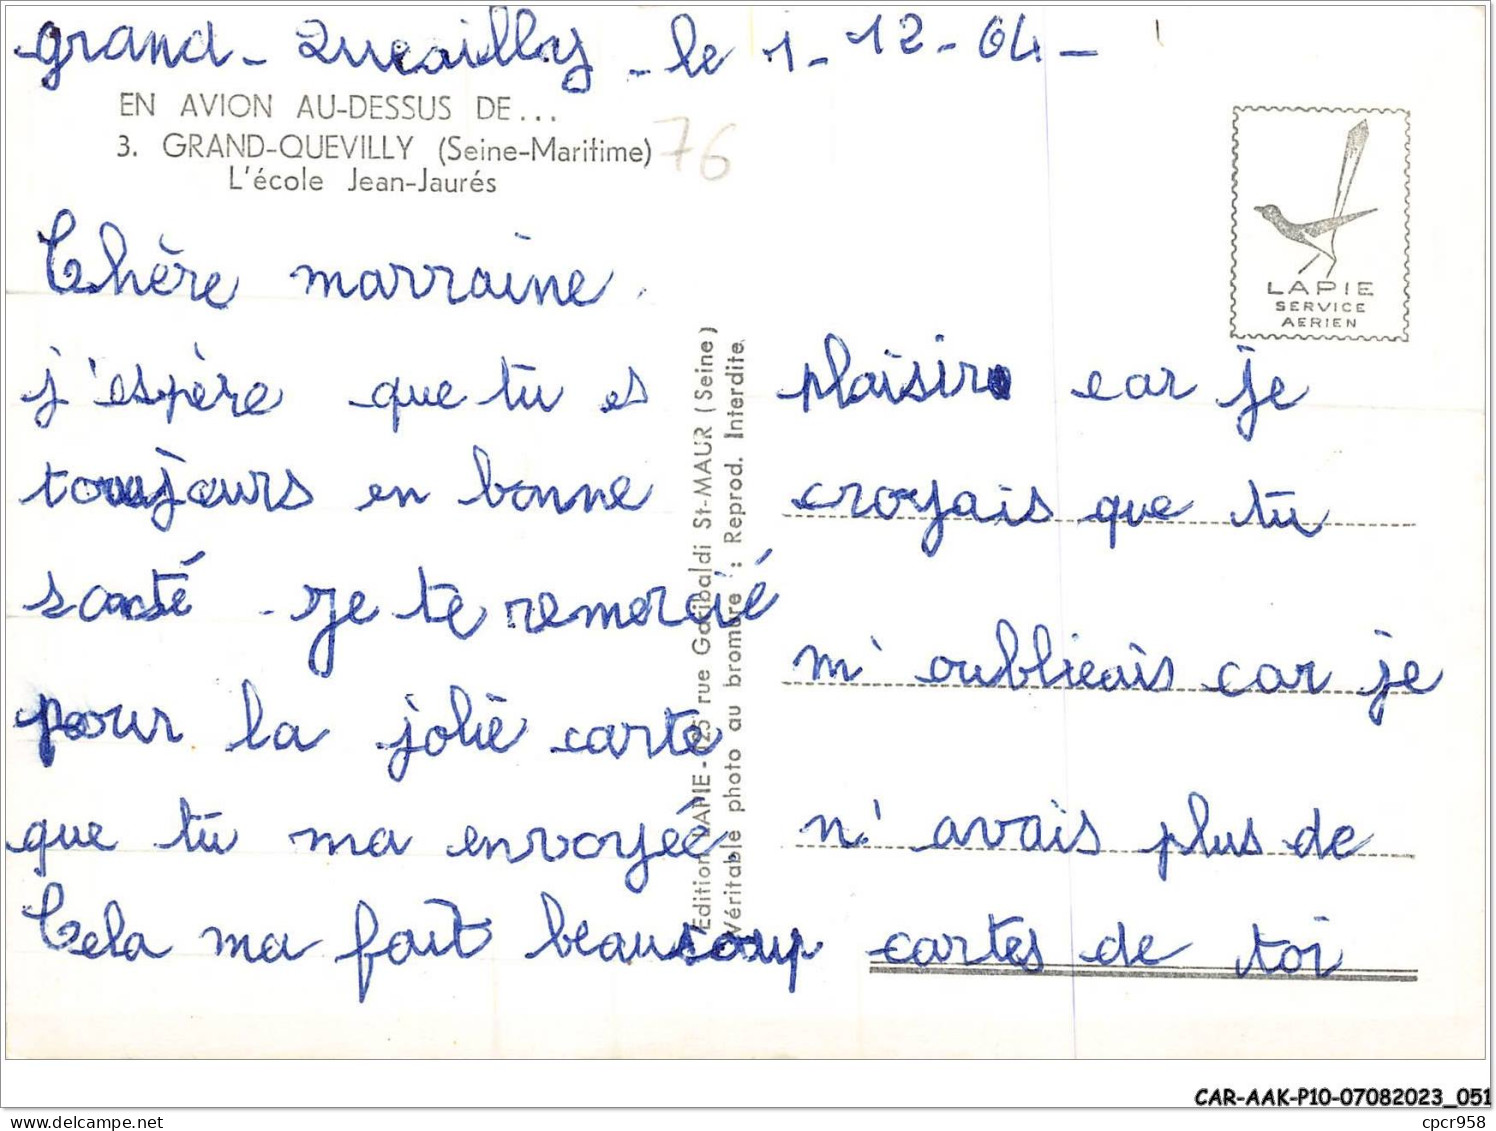 grand - Quevilly - le 1 - 12 - 64 -
EN AVION AU-DESSUS DE...
3. GRAND-QUEVILLY (Seine-Maritime)
L'école Jean-Jaurés
76
LAPIE
SERVICE
AERIEN
Chère marraine.
j'espère que tu es
toujours en bonne
santé - je te remercié
pour la jolie carte
que tu ma envoyéé.
Cela ma fait beaucoup
plaisir car je
croyais que tu
m'oublieais car je
n'avais plus de
cartes de toi
Edition LAPIE - rue Garibaldi St-MAUR (Seine)
Véritable photo au bromure : Reprod. Interdite
CAR-AAK-P10-07082023_051
cpcr958